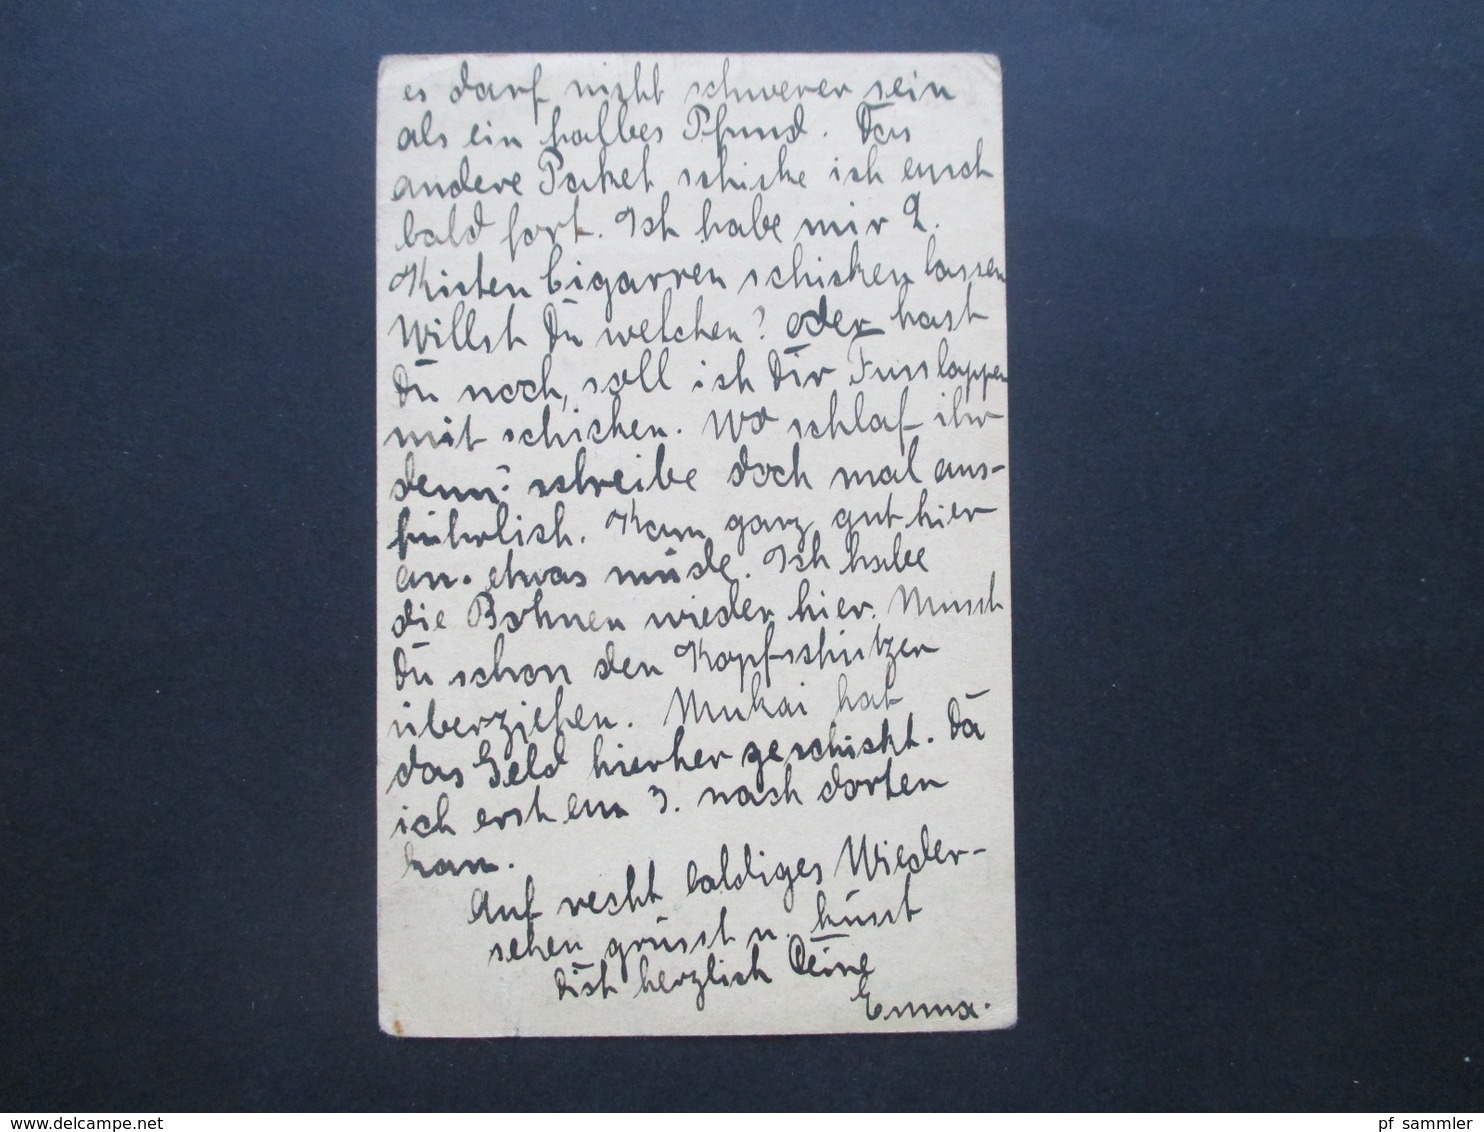 es darf nicht schwerer sein
als ein halbes Pfund. Das
andere Paket schicke ich euch
bald fort. Ich habe mir 2.
Kisten Cigarren schicken lassen
Willst Du welchen? oder hast
Du noch, soll ich Dir Fusslappen
mit schicken. Wo schlaf ihr
denn? schreibe doch mal aus-
führlich. Kam ganz gut hier
an. etwas müde. Ich habe
die Bohnen wieder hier. Musst
Du schon den Kopfschützer
überziehen. hat
das Geld hierher geschickt. Da
ich erst am 3. nach dorten
kam.
Auf recht baldiges Wieder-
sehen grüsst u. küsst
Dich herzlich Deine
Emma.
www.delcampe.net
pf_sammler